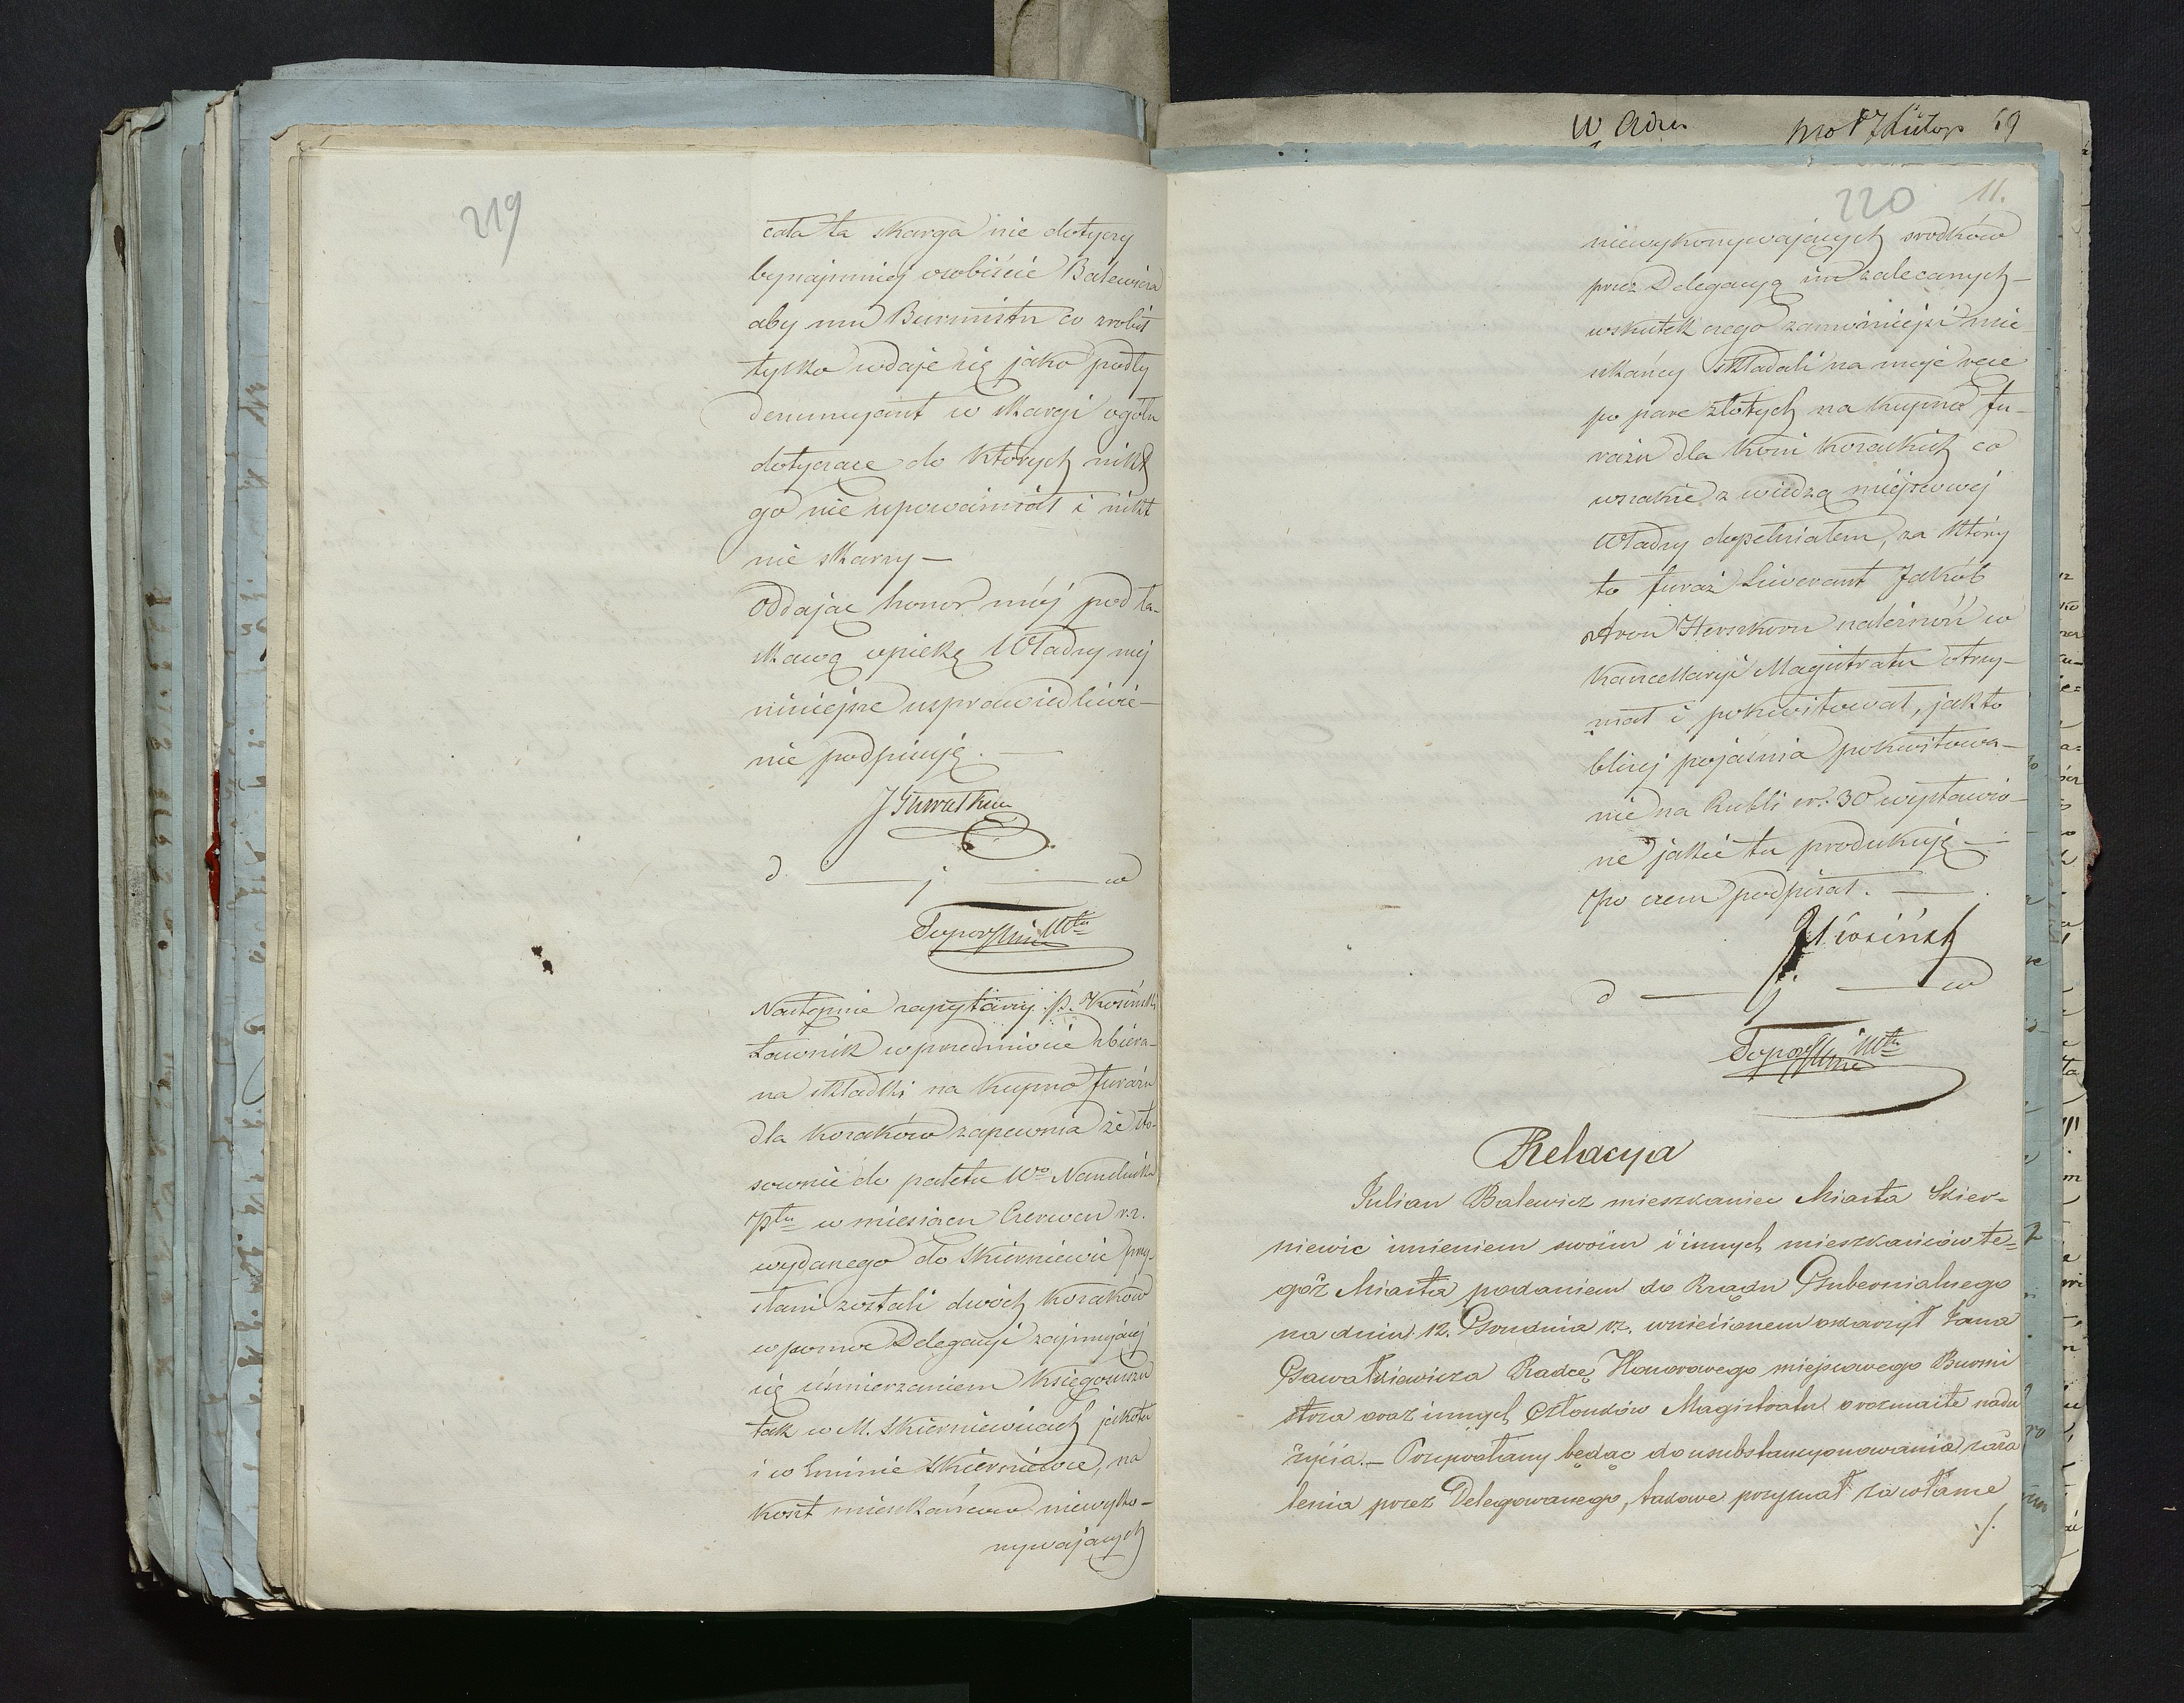 219
cała ta skarga nie dotyczy
bynajmniej osobiście Balewicza
aby mu Burmistrz co zrobił
tylko wdaje się jako podły
denuncyant w skargi ogółu
dotyczące do których nikt
go nie upoważniał i nikt
nie skarzy —
Oddając honor mój pod ła-
skawą opiekę Władzy mej
niniejsze usprawiedliwie-
nie podpisuję. —
d. — j. — w
Następnie zapytany p. Kosiński
Ławnik w przedmiocie zbiera-
na składki na kupno furażu
dla kozaków zapewnia że sto-
sownie do paletu Wo Naczelnika
Ptu w miesiącu Czerwcu r.z.
wydanego do Skierniewic przy-
słani zostali dwóch kozaków
w pomoc Delegacyi zajmującej
się uśmierzaniem Księgosuszu
tak w M. Skierniewicach jakoteż
i w Gminie Skierniewice, na
koszt mieszkańców niewyko-
nywających
W
69
220 11.
niewykonywających srodków
przez Delegacyą im zalecanych —
wskutek czego zamożniejsi mie
szkańcy składali na moje ręce
po parę złotych na kupno fu-
rażu dla koni kozackich co
wszakże z wiedzą miejscowej
Władzy dopełniałem, za który
to furaż Liwerant Jakób
Aron Herszkorn należność w
Kancellaryi Magistratu otrzy-
mał i pokwitował, jak to
bliżej pojaśnia pokwitowa-
nie na Rubli sr. 30 wystawio-
ne jakie tu produkuję —
Po czem podpisał. —
JKosiński
d — j. — w
Relacyja
Julian Balewicz mieszkaniec Miasta Skier=
niewic imieniem swoim i innych mieszkańców te=
goż Miasta podaniem do Rządu Gubernialnego
na dniu 12. Grudnia r.z. wniesionem oskarżył Jana
Gawałkiewicza Radcę Honorowego miejscowego Burmi
strza oraz innych Członków Magistratu o rozmaite nadu
życia. — Przywołany będąc do usubstancyonowania zaża
lenia przez Delegowanego, takowe przyznał za własne
./.